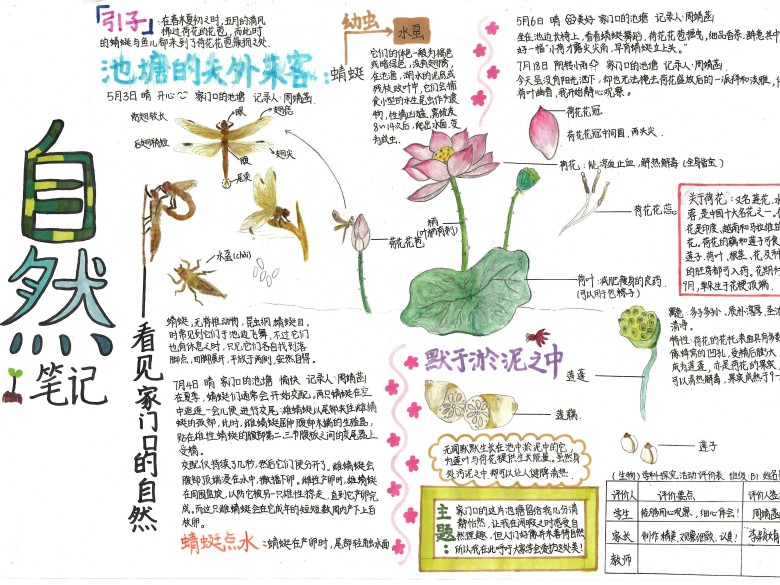 自然
笔记
看见家门口的自然
「引子」
:在春末夏初之时,五月的清风
拂过荷花的花苞,而此时
的蜻蜓与鱼儿都来到了荷花花苞簇拥之处.
池塘的天外来客:蜻蜓
5月3日 晴 开心 家门口的池塘 记录人:周靖茜
前翅较长
后翅稍短
眼
翅痣
翅尖
腹
尾突
水虿(chài)
幼虫
水虿
它们的体色一般为褐色
或暗绿色,没有翅膀,
在池塘、湖水的泥底或
残枝败叶中,它们会捕
食小型的水生昆虫作为食
物,性情凶猛,需蜕皮
8~14次后,爬出水面,变
为成虫.
蜻蜓,无脊椎动物,昆虫纲,蜻蜓目.
时常见到它们于池边飞舞,不过它们
也有休息之时,只见它们各自找到落
脚点,四脚展开,平放于两侧,安然自得.
7月4日 晴 家门口的池塘 愉快 记录人:周靖茜
在夏季,蜻蜓们通常会开始交配,两只蜻蜓在空
中追逐一会儿便进行交尾,雄蜻蜓以尾部夹住雌蜻
蜓的颈部,此时,雌蜻蜓屈伸腹部末端的生殖器,
贴在雄性蜻蜓的腹部第二、三节腹板之间的交尾器上
受精.
交配仅持续了几节,然后它们便分开了.雌蜻蜓会
腹部顶端浸在水中,撒播下卵.雌性产卵时,雄蜻蜓
在周围盘旋,以防它被另一只雄性偷走,直到它产卵完
成.而这只雌蜻蜓会在它成年的短短数周内产下上百
枚卵.
蜻蜓点水:蜻蜓在产卵时,尾部轻触水面
5月6日 晴 美好 家门口的池塘 记录人:周靖茜
坐在池边长椅上,看着蜻蜓舞蹈,荷花花苞摇曳,细品香茶,醉意其中
好一幅“小荷才露尖尖角,早有蜻蜓立上头.”
7月18日 阴转小雨 家门口的池塘 记录人:周靖茜
今天虽没有阳光洒下,却也无法掩去荷花盛放后的一派祥和与淡雅,
荷叶幽香,我开始静心观察.
荷花花冠
荷花花冠中间圆,两头尖.
荷花:能凉血止血,解热解毒(全身皆宝)
荷花花蕊
荷花花苞
柄
(叶柄有刺)
荷叶:减肥瘦身的良药.
(可以用包粽子)
关于荷花:又名莲花、水
蓉,是中国十大名花之一,
花是印度、越南和马拉维的
花,荷花的藕和莲子可食
莲子、荷叶、根茎、花及种
的胚芽都可入药.花期
9月,单朵生于花梗顶端.
莲蓬
清香.
特性:荷花的花托表面具有多数
像蜂窝的凹孔,受精后膨大
成为莲蓬,亦是荷花的果实,
可以清热解毒,果实成熟于9~
默于淤泥之中
莲藕
莲子
无闻默默生长在池中淤泥中的它,
为莲叶与荷花提供生长能量.虽然身
处污泥之中却可以让人健脾清热.
主题:
家门口的这片池塘留给我几分清
静怡然,让我在闲暇之时感受自
然理趣.但人们好像并未善待自然
所以我在此呼吁大家学会爱护这处美!
(生物)学科探究活动评价表 班级:B1 姓名
评价人 评价要点 评价人签
学生 能够用心观察、细心体会! 周靖茜
家长 制作精美,观察细致,认真!
教师